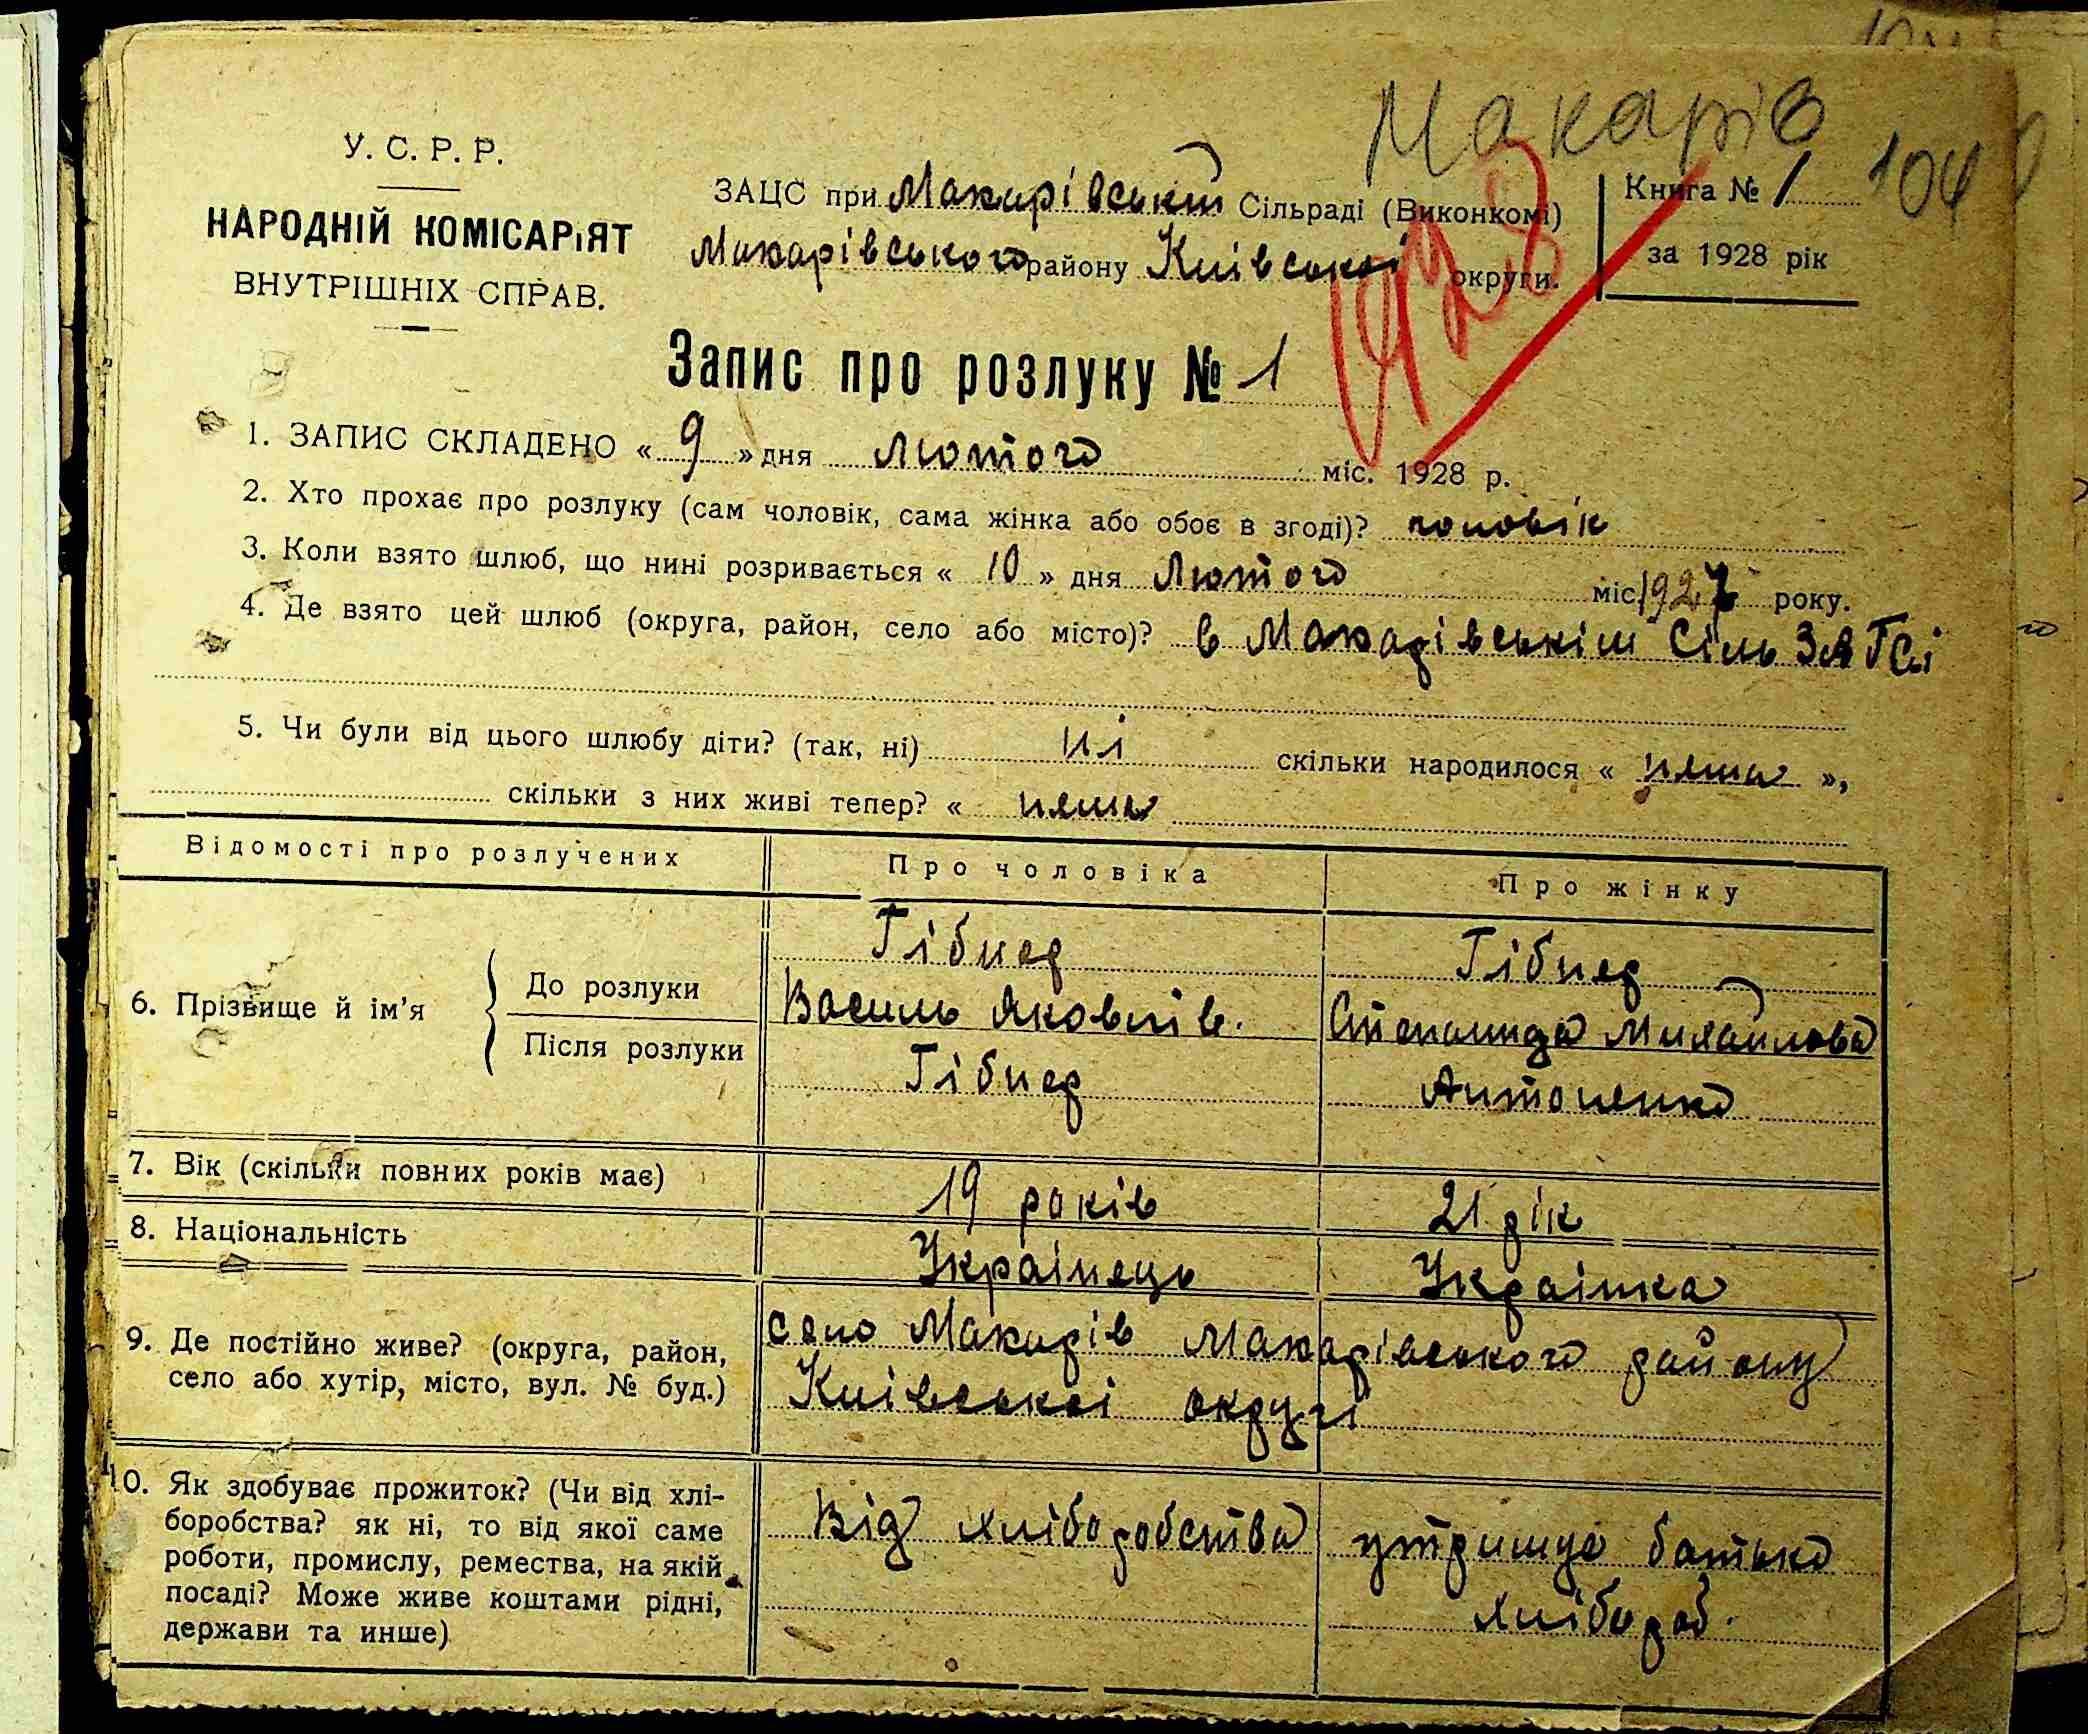 Макарів
104
У. С. Р. Р.
НАРОДНІЙ КОМІСАРіЯТ
ВНУТРІШНІХ СПРАВ.
ЗАЦС при Макарівській Сільраді (Виконкомі)
Макарівського району Київської округи.
Книга № 1
за 1928 рік
1928
Запис про розлуку № 1
1. ЗАПИС СКЛАДЕНО « 9 » дня лютого міс. 1928 р.
2. Хто прохає про розлуку (сам чоловік, сама жінка або обоє в згоді)? чоловік
3. Коли взято шлюб, що нині розривається « 10 » дня Лютого міс. 1927 року.
4. Де взято цей шлюб (округа, район, село або місто)? в Макарівськім Сіль ЗАГСі
5. Чи були від цього шлюбу діти? (так, ні) ні скільки народилося « нема »,
скільки з них живі тепер? « нема
Відомості про розлучених Про чоловіка Про жінку
6. Прізвище й ім'я
До розлуки
Гібнер
Василь Яковлів.
Гібнер
Степанида Михайлова
Після розлуки
Гібнер
Антоненко
7. Вік (скільки повних років має) 19 років 21 рік
8. Національність Українець Українка
9. Де постійно живе? (округа, район,
село або хутір, місто, вул. № буд.)
село Макарів Макарівського району
Київської округі
10. Як здобуває прожиток? (Чи від хлі-
боробства? як ні, то від якої саме
роботи, промислу, ремества, на якій
посаді? Може живе коштами рідні,
держави та инше)
Від хліборобства
утримує батько
хлібороб.